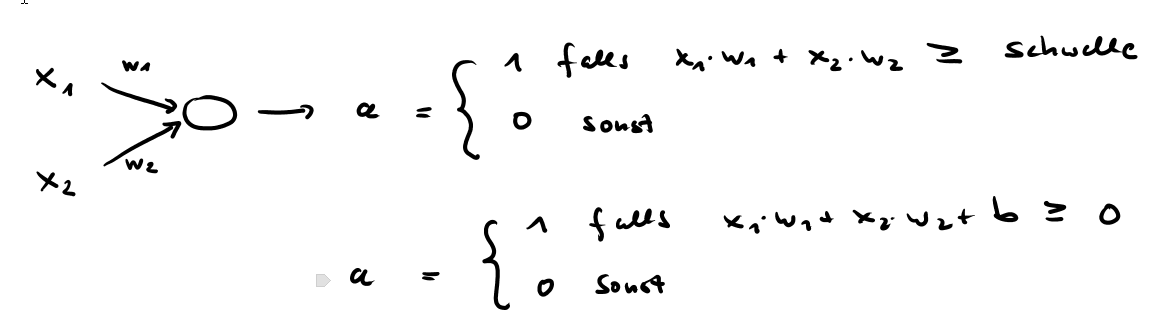 x₁ w₁ → a = { 1 falls x₁·w₁ + x₂·w₂ ≥ schwelle
x₂ w₂ 0 sonst
a = { 1 falls x₁·w₁ + x₂·w₂ + b ≥ 0
0 sonst